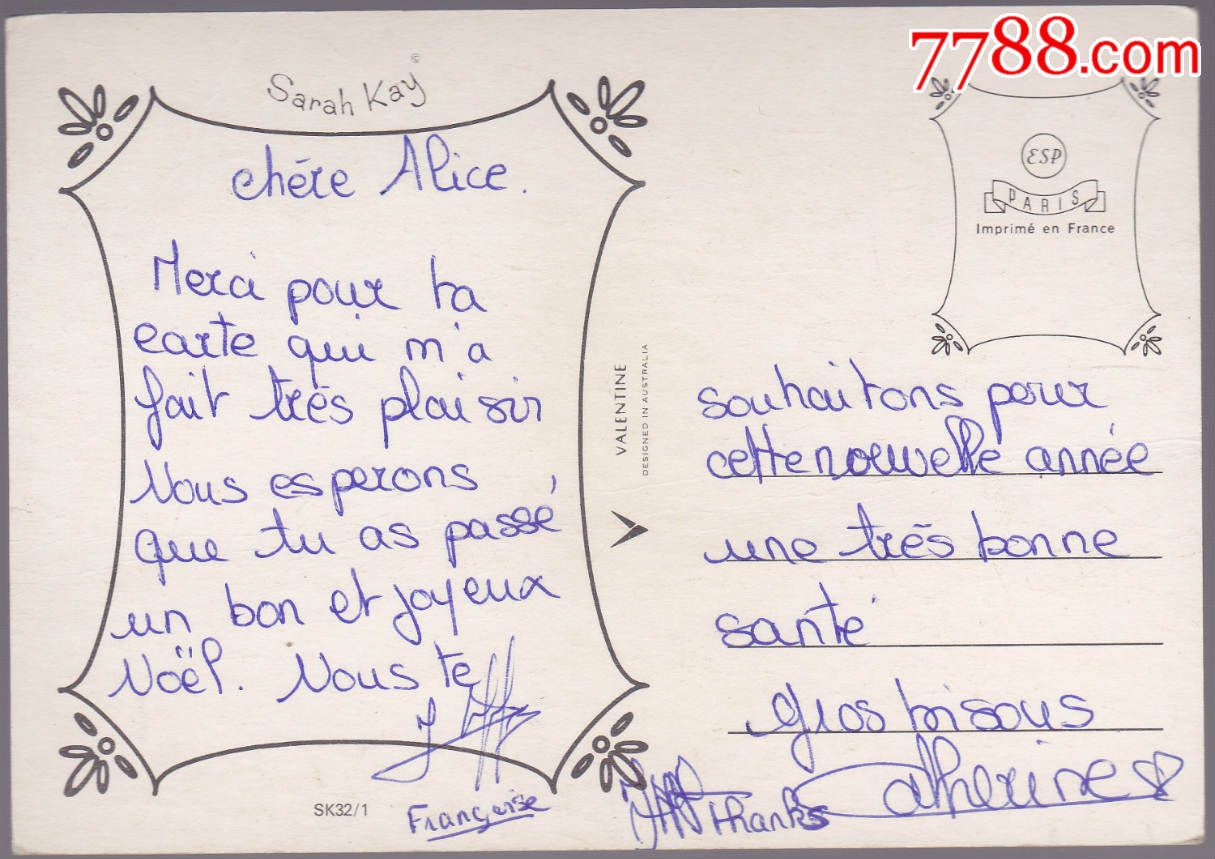 7788.com
Sarah Kay
©
chére Alice.
Merci pour ta
carte qui m'a
fait très plaisir
Nous esperons
que tu as passé
un bon et joyeux
Noël. Nous te
Françoise
SK32/1
VALENTINE
DESIGNED IN AUSTRALIA
ESP
PARIS
Imprimé en France
souhaitons pour
cette nouvelle année
une très bonne
santé
Gros bisous
Thanks Catherine